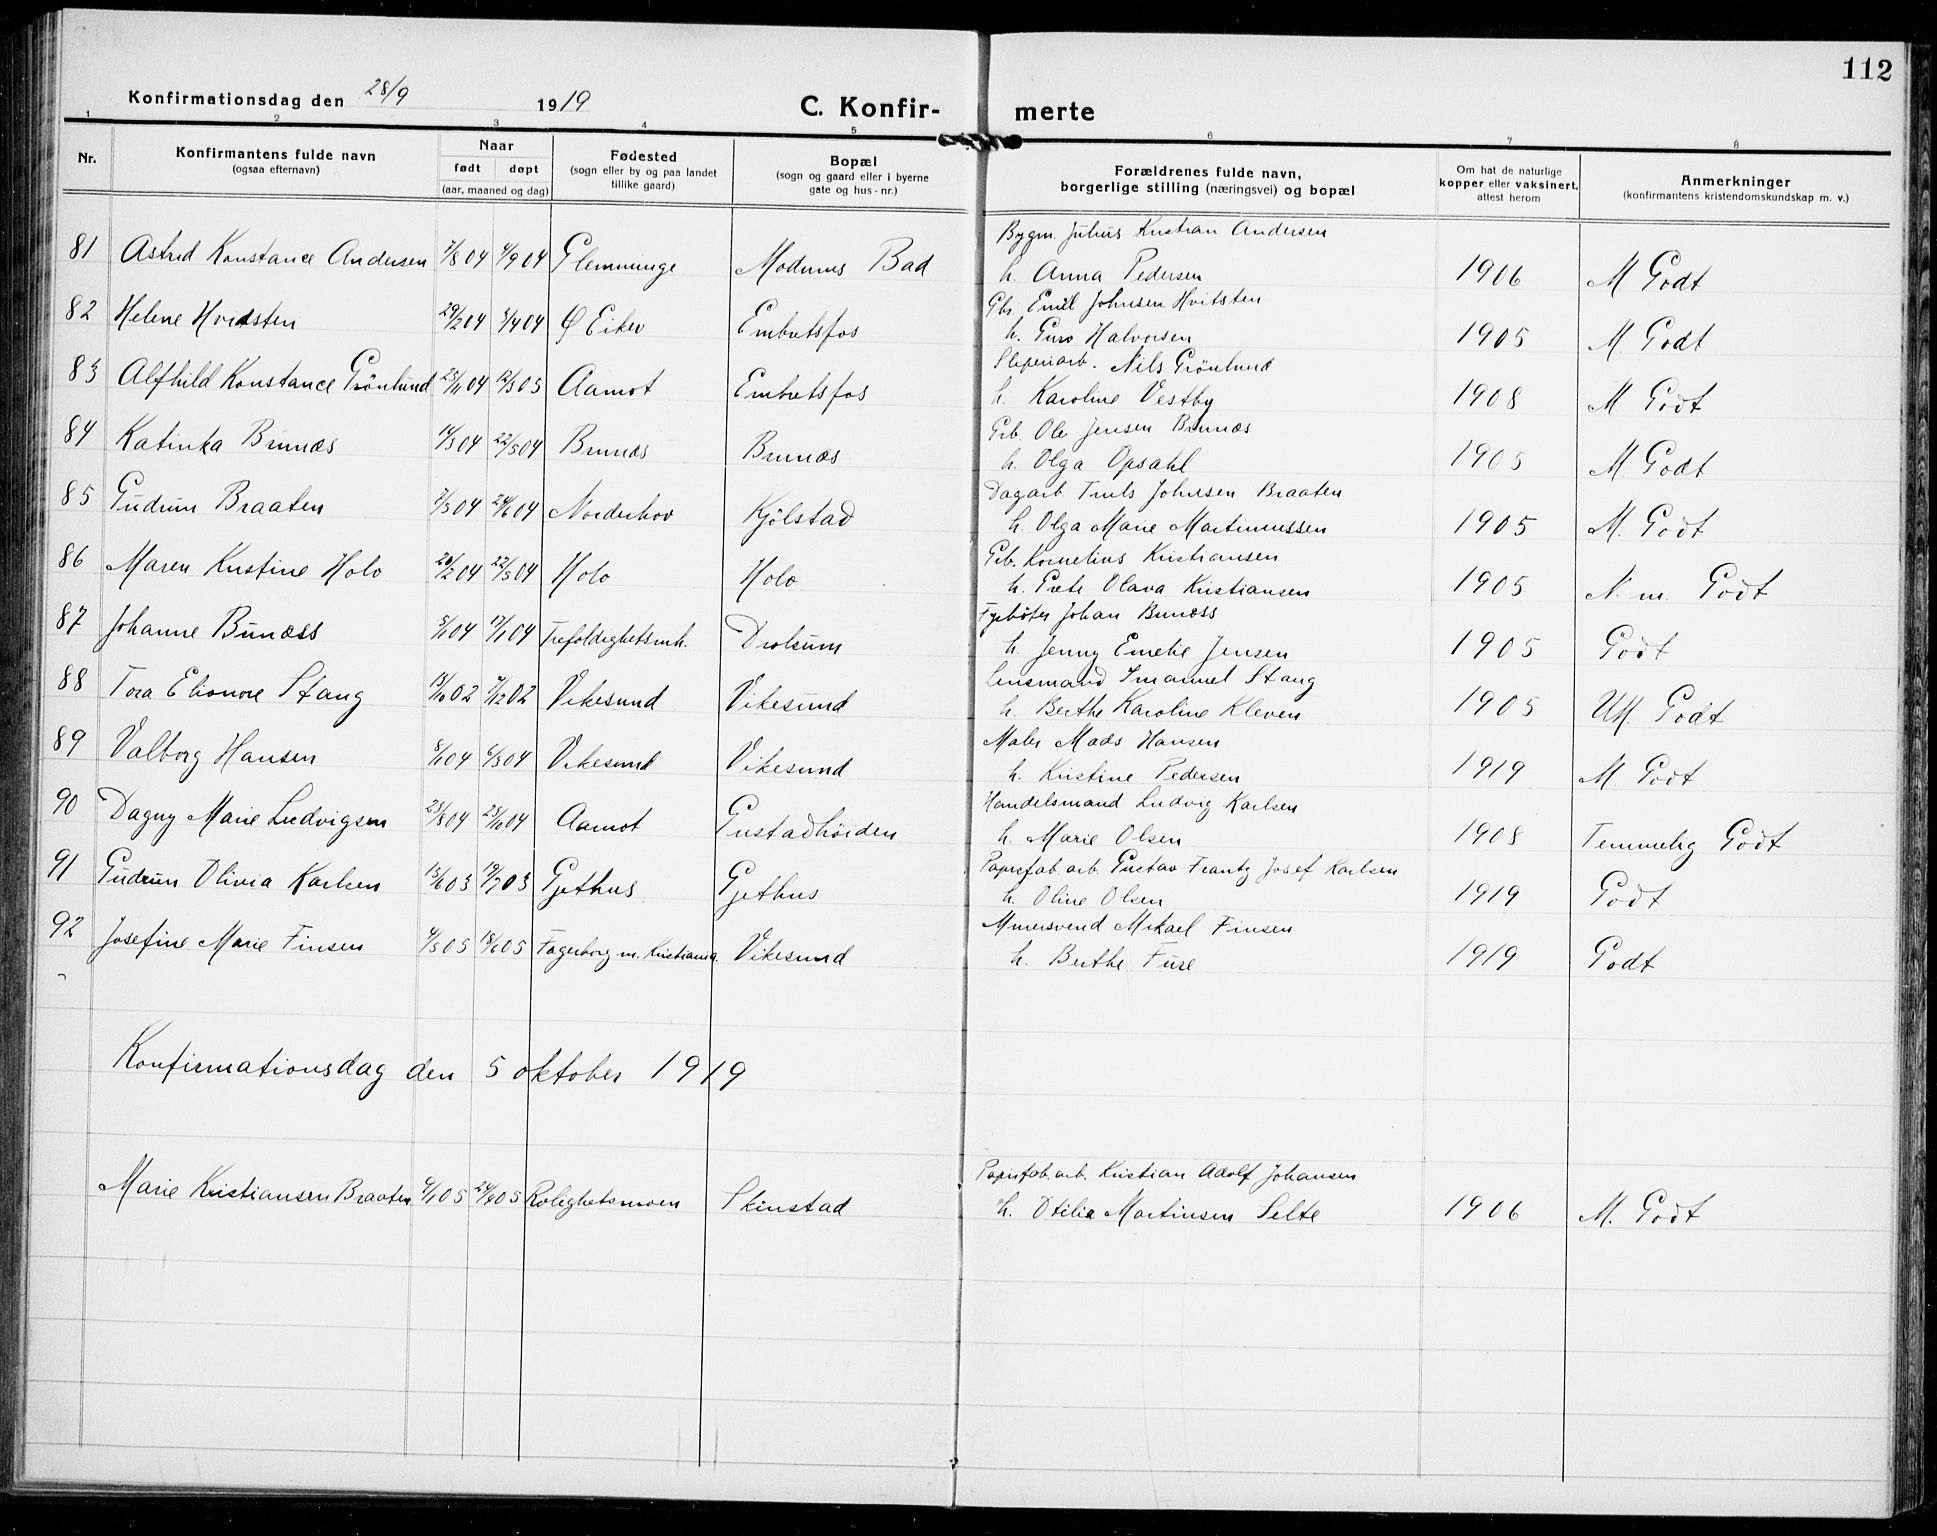 112
Konfirmationsdag den 28/9 1919 C. Konfir- merte
1 2 3 4 5 6 7 8
Nr. Konfirmantens fulde navn (ogsaa efternavn) Naar født døpt (aar, maaned og dag) Fødested (sogn eller by og paa landet tillike gaard) Bopæl (sogn og gaard eller i byerne gate og hus-nr.) Forældrenes fulde navn, borgerlige stilling (næringsvei) og bopæl Om hat de naturlige kopper eller vaksinert, attest herom Anmerkninger (konfirmantens kristendomskundskap m. v.)
Bygm. Julius Kristian Andersen
81 Astrid Konstance Andersen 7/8 04 4/9 04 Glemminge Modums Bad h. Anna Pedersen 1906 M Godt
Gbr. Emil Johnsen Hvitsten
82 Helene Hvidsten 29/2 04 3/4 04 Ø Eiker Embretsfos h. Guro Halvorsen 1905 M Godt
Sliperiarb. Nils Grönlund
83 Alfhild Konstance Grönlund 23/11 04 12/3 05 Aamot Embretsfos h. Karoline Vestby 1908 M Godt
Grb. Ole Jensen Bunæs
84 Katinka Bunæs 14/3 04 22/5 04 Bunæs Bunæs h. Olga Opsahl 1905 M Godt
Dagarb. Truls Johnsen Braaten
85 Gudrun Braaten 7/3 04 24/6 04 Norderhov Kjölstad h. Olga Marie Martinussen 1905 M. Godt
Grb. Kornelius Kristiansen
86 Maren Kristine Holo 20/2 04 22/5 04 Holo Holo h. Grete Olava Kristiansen 1905 N. m. Godt
Fyrböter Johan Bunæss
87 Johanne Bunæss 5/1 04 17/1 04 Trefoldighetsmh. Drolsum h. Jenny Emelie Jensen 1905 Godt
Lensmand Imanuel Stang
88 Tora Elionore Stang 13/10 02 7/12 02 Vikesund Vikesund h. Berthe Karoline Kleven 1905 UM. Godt
Maler Mads Hansen
89 Valborg Hansen 8/1 04 6/3 04 Vikesund Vikesund h. Kristine Pedersen 1919 M. Godt
Handelsmand Ludvig Karlsen
90 Dagny Marie Ludvigsen 25/8 04 23/10 04 Aamot Gustadhöiden h. Marie Olsen 1908 Temmelig Godt
Papirfab. arb. Gustav Frantz Josef Karlsen
91 Gudrun Olivia Karlsen 13/6 03 19/7 03 Gjethus Gjethus h. Oline Olsen 1919 Godt
Mursvend Mikael Finsen
92 Josefine Marie Finsen 4/5 05 18/6 05 Fagerborg m. Kristiania. Vikesund h. Berthe Fure 1919 Godt
Konfirmationsdag den 5 oktober 1919
Papirfab. arb. Kristian Adolf Johansen
Marie Kristiansen Braaten 4/1 05 24/4 05 Rolighetsmoen Skinstad h. Otilie Martinsen Selte 1906 M. Godt